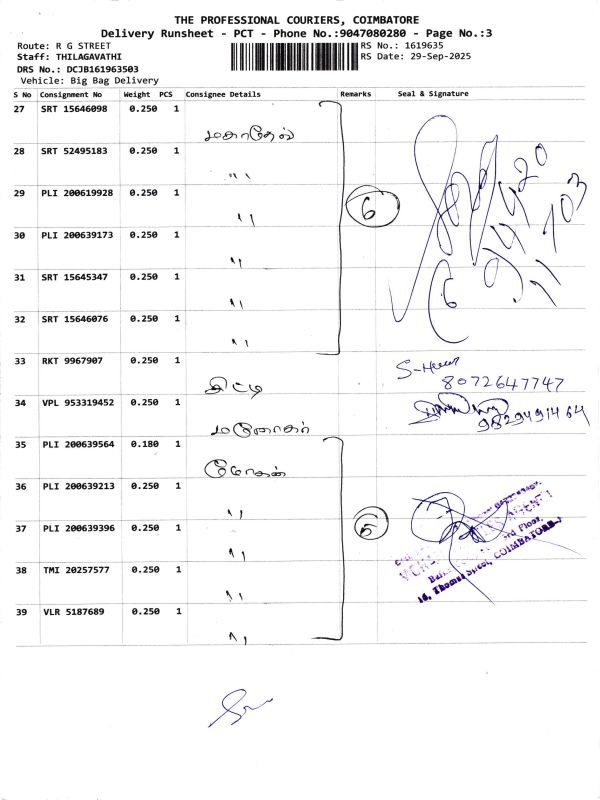 THE PROFESSIONAL COURIERS, COIMBATORE
Delivery Runsheet - PCT - Phone No.:9047080280 - Page No.:3
Route: R G STREET
RS No.: 1619635
Staff: THILAGAVATHI
RS Date: 29-Sep-2025
DRS No.: DCJB161963503
Vehicle: Big Bag Delivery
S No Consignment No Weight PCS Consignee Details Remarks Seal & Signature
27 SRT 15646098 0.250 1
மகாதேவ்
28 SRT 52495183 0.250 1
"
29 PLI 200619928 0.250 1
"
6
30 PLI 200639173 0.250 1
"
31 SRT 15645347 0.250 1
"
6
32 SRT 15646076 0.250 1
"
33 RKT 9967907 0.250 1
8072647747
34 VPL 953319452 0.250 1
மனோகர்
35 PLI 200639564 0.180 1
36 PLI 200639213 0.250 1
"
5
37 PLI 200639396 0.250 1
"
38 TMI 20257577 0.250 1
"
39 VLR 5187689 0.250 1
"
Floor,
16, Thomas Street, COIMBATORE-1